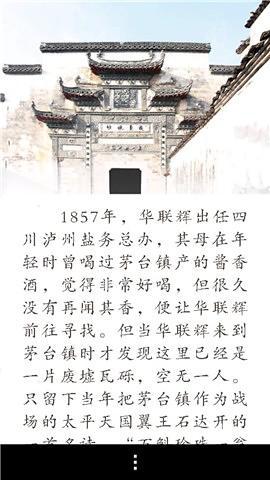 1857年，华联辉出任四
川泸州盐务总办，其母在年
轻时曾喝过茅台镇产的酱香
酒，觉得非常好喝，但很久
没有再闻其香，便让华联辉
前往寻找。但当华联辉来到
茅台镇时才发现这里已经是
一片废墟瓦砾，空无一人。
只留下当年把茅台镇作为战
场的太平天国翼王石达开的